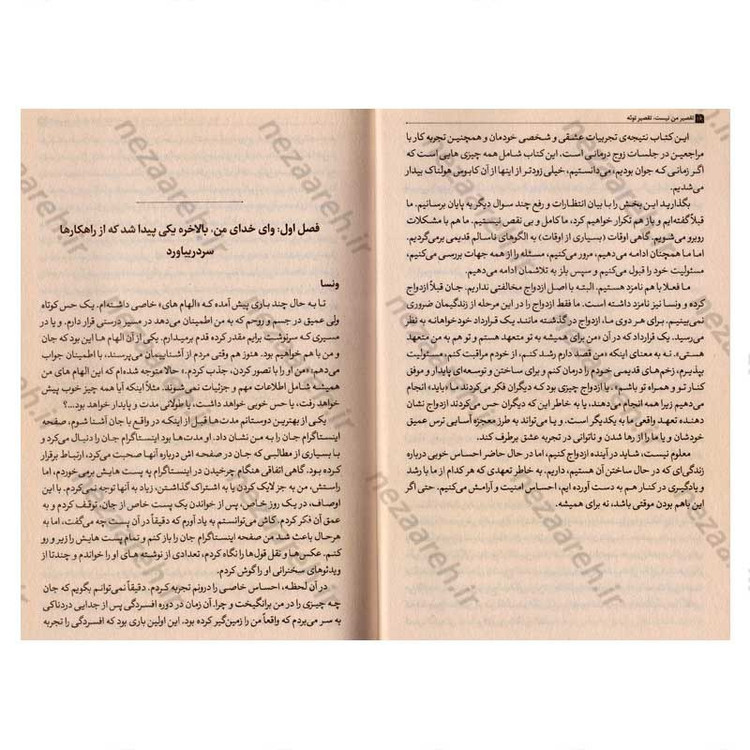 تقصیر من نیست، تقصیر توئه
این کتاب نتیجه‌ی تجربیات عشقی و شخصی خودمان و همچنین تجربه کار با
مراجعین در جلسات زوج درمانی است. این کتاب شامل همه چیزی هایی است که
اگر زمانی که جوان بودیم، می‌دانستیم، خیلی زودتر از اینها از آن کابوس هولناک بیدار
می‌شدیم.
بگذارید این بخش را با بیان انتظارات و رفع چند سوال دیگر به پایان برسانیم. ما
قبلاً گفته‌ایم و باز هم تکرار خواهیم کرد، ما کامل و بی نقص نیستیم. ما هم با مشکلات
روبرو می‌شویم. گاهی اوقات (بسیاری از اوقات) به الگوهای ناسالم قدیمی برمی‌گردیم.
اما ما همچنان ادامه می‌دهیم، مرور می‌کنیم، مسئله را از همه جهات بررسی می‌کنیم،
مسئولیت خود را قبول می‌کنیم و سپس باز به تلاشمان ادامه می‌دهیم.
ما فعلا با هم نامزد هستیم. البته با اصل ازدواج مخالفتی نداریم. جان قبلاً ازدواج
کرده و ونسا نیز نامزد داشته است. ما فقط ازدواج را در این مرحله از زندگیمان ضروری
نمی‌بینیم. برای هر دوی ما، ازدواج در گذشته مانند یک قرارداد خودخواهانه به نظر
می‌رسید. یک قرارداد که در آن «من برای همیشه به تو متعهد هستم و تو هم به من متعهد
هستی». نه به معنای اینکه «من قصد دارم رشد کنم، از خودم مراقبت کنم، مسئولیت
بپذیرم، زخم‌های قدیمی خودم را درمان کنم و برای ساختن و توسعه‌ای پایدار و موفق
کنار تو و همراه تو باشم». یا ازدواج چیزی بود که دیگران فکر می‌کردند ما «باید» انجام
می‌دهیم زیرا همه انجام می‌دهند، یا به خاطر این که دیگران حس می‌کردند ازدواج نشان
دهنده تعهد واقعی ما به یکدیگر است. و یا می‌تواند به طرز معجزه آسایی ترس عمیق
خودشان و یا ما را از رها شدن و ناتوانی در تجربه عشق برطرف کند.
معلوم نیست، شاید در آینده ازدواج کنیم، اما در حال حاضر احساس خوبی درباره
زندگی‌ای که در حال ساختن آن هستیم، داریم. به خاطر تعهدی که هر کدام از ما با رشد
و یادگیری در کنار هم به دست آورده ایم، احساس امنیت و آرامش می‌کنیم. حتی اگر
این باهم بودن موقتی باشد، نه برای همیشه.
فصل اول: وای خدای من، بالاخره یکی پیدا شد که از راهکارها
سردربیاورد
ونسا
تا به حال چند باری پیش آمده که «الهام های» خاصی داشته‌ام. یک حس کوتاه
ولی عمیق در جسم و روحم که به من اطمینان می‌دهد در مسیر درستی قرار دارم. و یا در
مسیری که سرنوشت برایم مقدر کرده قدم برمیدارم. یکی از آن الهام ها این بود که جان
و من با هم خواهیم بود. هنوز هم وقتی مردم از آشناییمان می‌پرسند، با اطمینان جواب
می‌دهم، «من او را با تصور کردن، جذب کردم.» حالا متوجه شده‌ام که این الهام های من
همیشه شامل اطلاعات مهم و جزئیات نمی‌شوند. مثلاً اینکه آیا همه چیز خوب پیش
خواهد رفت، یا حس خوبی خواهد داشت، یا طولانی مدت و پایدار خواهد بود..؟
یکی از بهترین دوستانم مدت‌ها قبل از اینکه در واقع با جان آشنا شوم، صفحه
اینستاگرام جان را به من نشان داد. او مدت‌ها بود اینستاگرام جان را دنبال می‌کرد و
با بسیاری از مطالبی که جان در صفحه اش درباره آنها صحبت می‌کرد، ارتباط برقرار
کرده بود. گاهی اتفاقی هنگام چرخیدن در اینستاگرام به پست هایش برمی‌خوردم، اما
راستش، من به جز لایک کردن یا به اشتراک گذاشتن، زیاد به آنها توجه نمی‌کردم. با این
اوصاف، در یک روز خاص، پس از خواندن یک پست خاص از جان، توقف کردم و به
عمق آن فکر کردم. کاش می‌توانستم به یاد آورم که دقیقاً در آن پست چه می‌گفت، اما به
هرحال باعث شد من صفحه اینستاگرام جان را باز کنم و تمام پست هایش را زیر و رو
کنم. عکس‌ها و نقل قول‌ها را نگاه کردم، تعدادی از نوشته های او را خواندم و چندتا از
ویدئوهای سخنرانی او را گوش کردم.
در آن لحظه، احساس خاصی را درونم تجربه کردم. دقیقاً نمی‌توانم بگویم که جان
چه چیزی را در من برانگیخت و چرا. آن زمان در دوره افسردگی پس از جدایی دردناکی
به سر می‌بردم که واقعاً من را زمین‌گیر کرده بود. این اولین باری بود که افسردگی را تجربه
nezaareh.ir